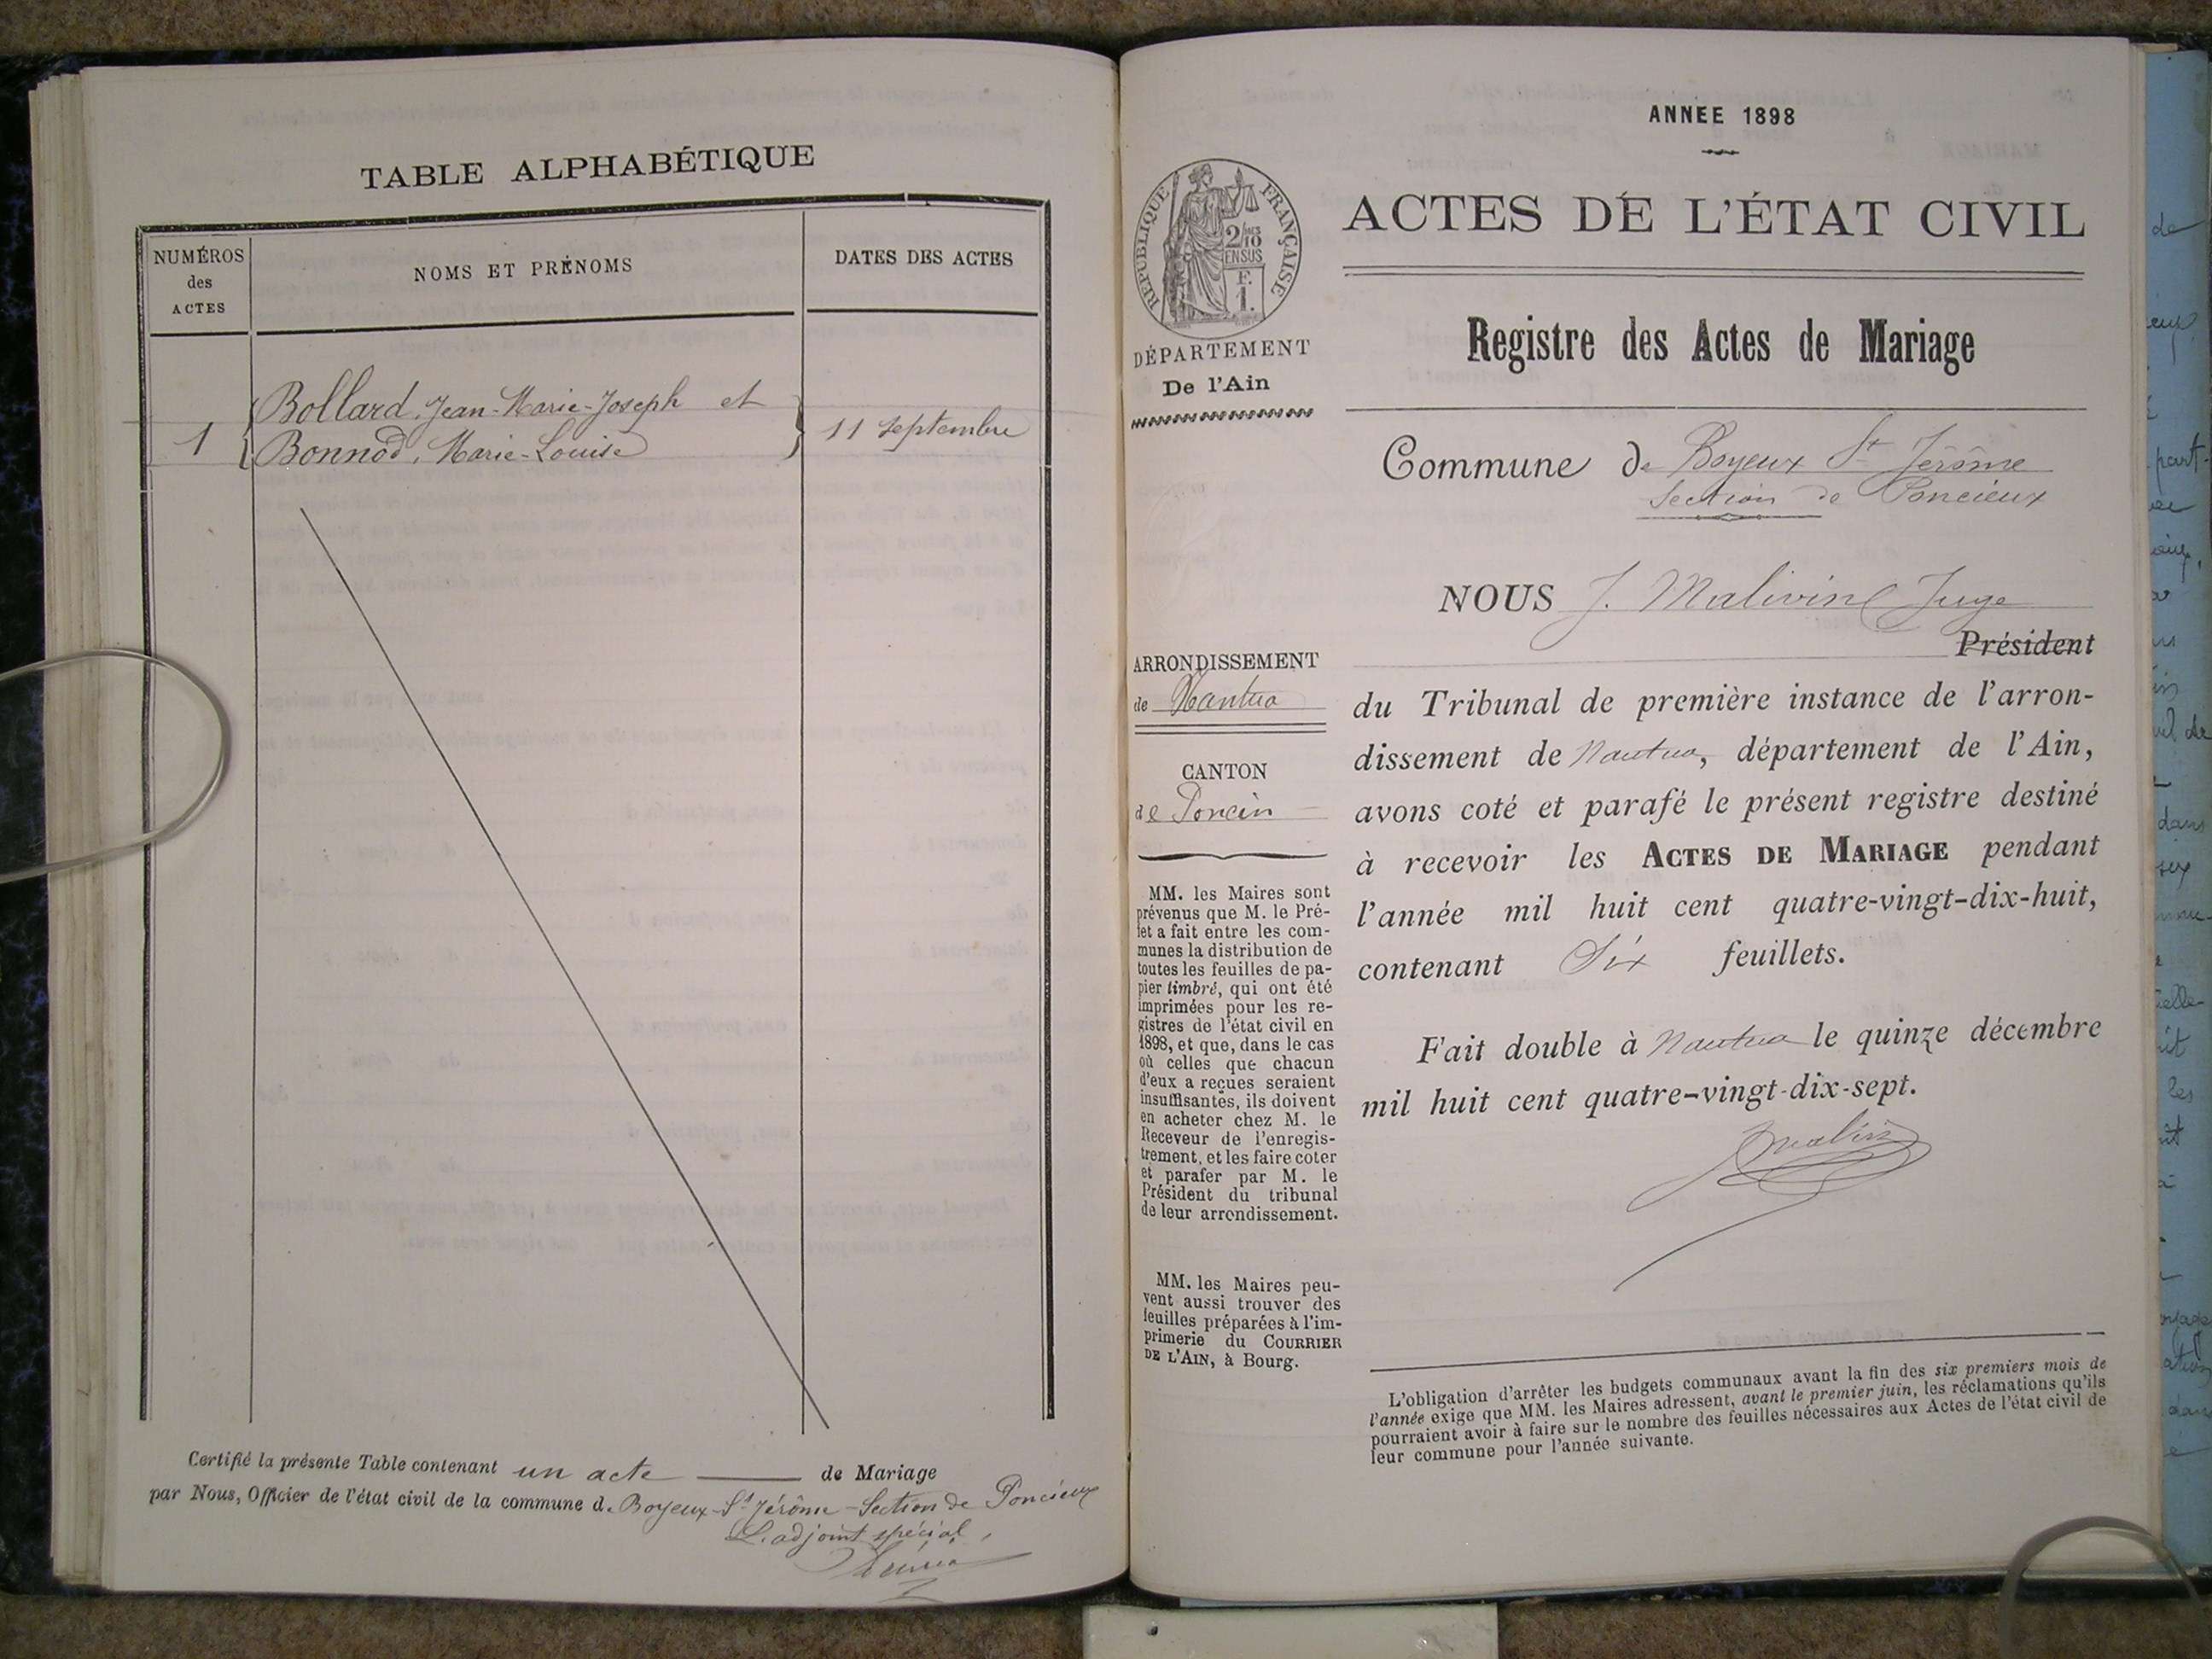 TABLE ALPHABÉTIQUE
NUMÉROS
des
ACTES
NOMS ET PRÉNOMS
DATES DES ACTES
Bollard, Jean-Marie-Joseph et
1
Bonnod, Marie-Louise
11 septembre
Certifié la présente Table contenant un acte de Mariage
par Nous, Officier de l'état civil de la commune d. Boyeux-St Jérôme - Section de Poncieux
L'adjoint spécial,
ANNEE 1898
RÉPUBLIQUE FRANÇAISE
2/10
EN SUS
F.
1.
ACTES DE L'ÉTAT CIVIL
DÉPARTEMENT
De l'Ain
Registre des Actes de Mariage
Commune de Boyeux St Jérôme
Section de Poncieux
NOUS J. Malivin Juge
Président
ARRONDISSEMENT
de Nantua
CANTON
de Poncin
du Tribunal de première instance de l'arron-
dissement de Nantua, département de l'Ain,
avons coté et parafé le présent registre destiné
à recevoir les ACTES DE MARIAGE pendant
l'année mil huit cent quatre-vingt-dix-huit,
contenant Six feuillets.
Fait double à Nantua le quinze décembre
mil huit cent quatre-vingt-dix-sept.
Malivin
MM. les Maires sont
prévenus que M. le Pré-
fet a fait entre les com-
munes la distribution de
toutes les feuilles de pa-
pier timbré, qui ont été
imprimées pour les re-
gistres de l'état civil en
1898, et que, dans le cas
où celles que chacun
d'eux a reçues seraient
insuffisantes, ils doivent
en acheter chez M. le
Receveur de l'enregis-
trement, et les faire coter
et parafer par M. le
Président du tribunal
de leur arrondissement.
MM. les Maires peu-
vent aussi trouver des
feuilles préparées à l'im-
primerie du COURRIER
DE L'AIN, à Bourg.
L'obligation d'arrêter les budgets communaux avant la fin des six premiers mois de
l'année exige que MM. les Maires adressent, avant le premier juin, les réclamations qu'ils
pourraient avoir à faire sur le nombre des feuilles nécessaires aux Actes de l'état civil de
leur commune pour l'année suivante.